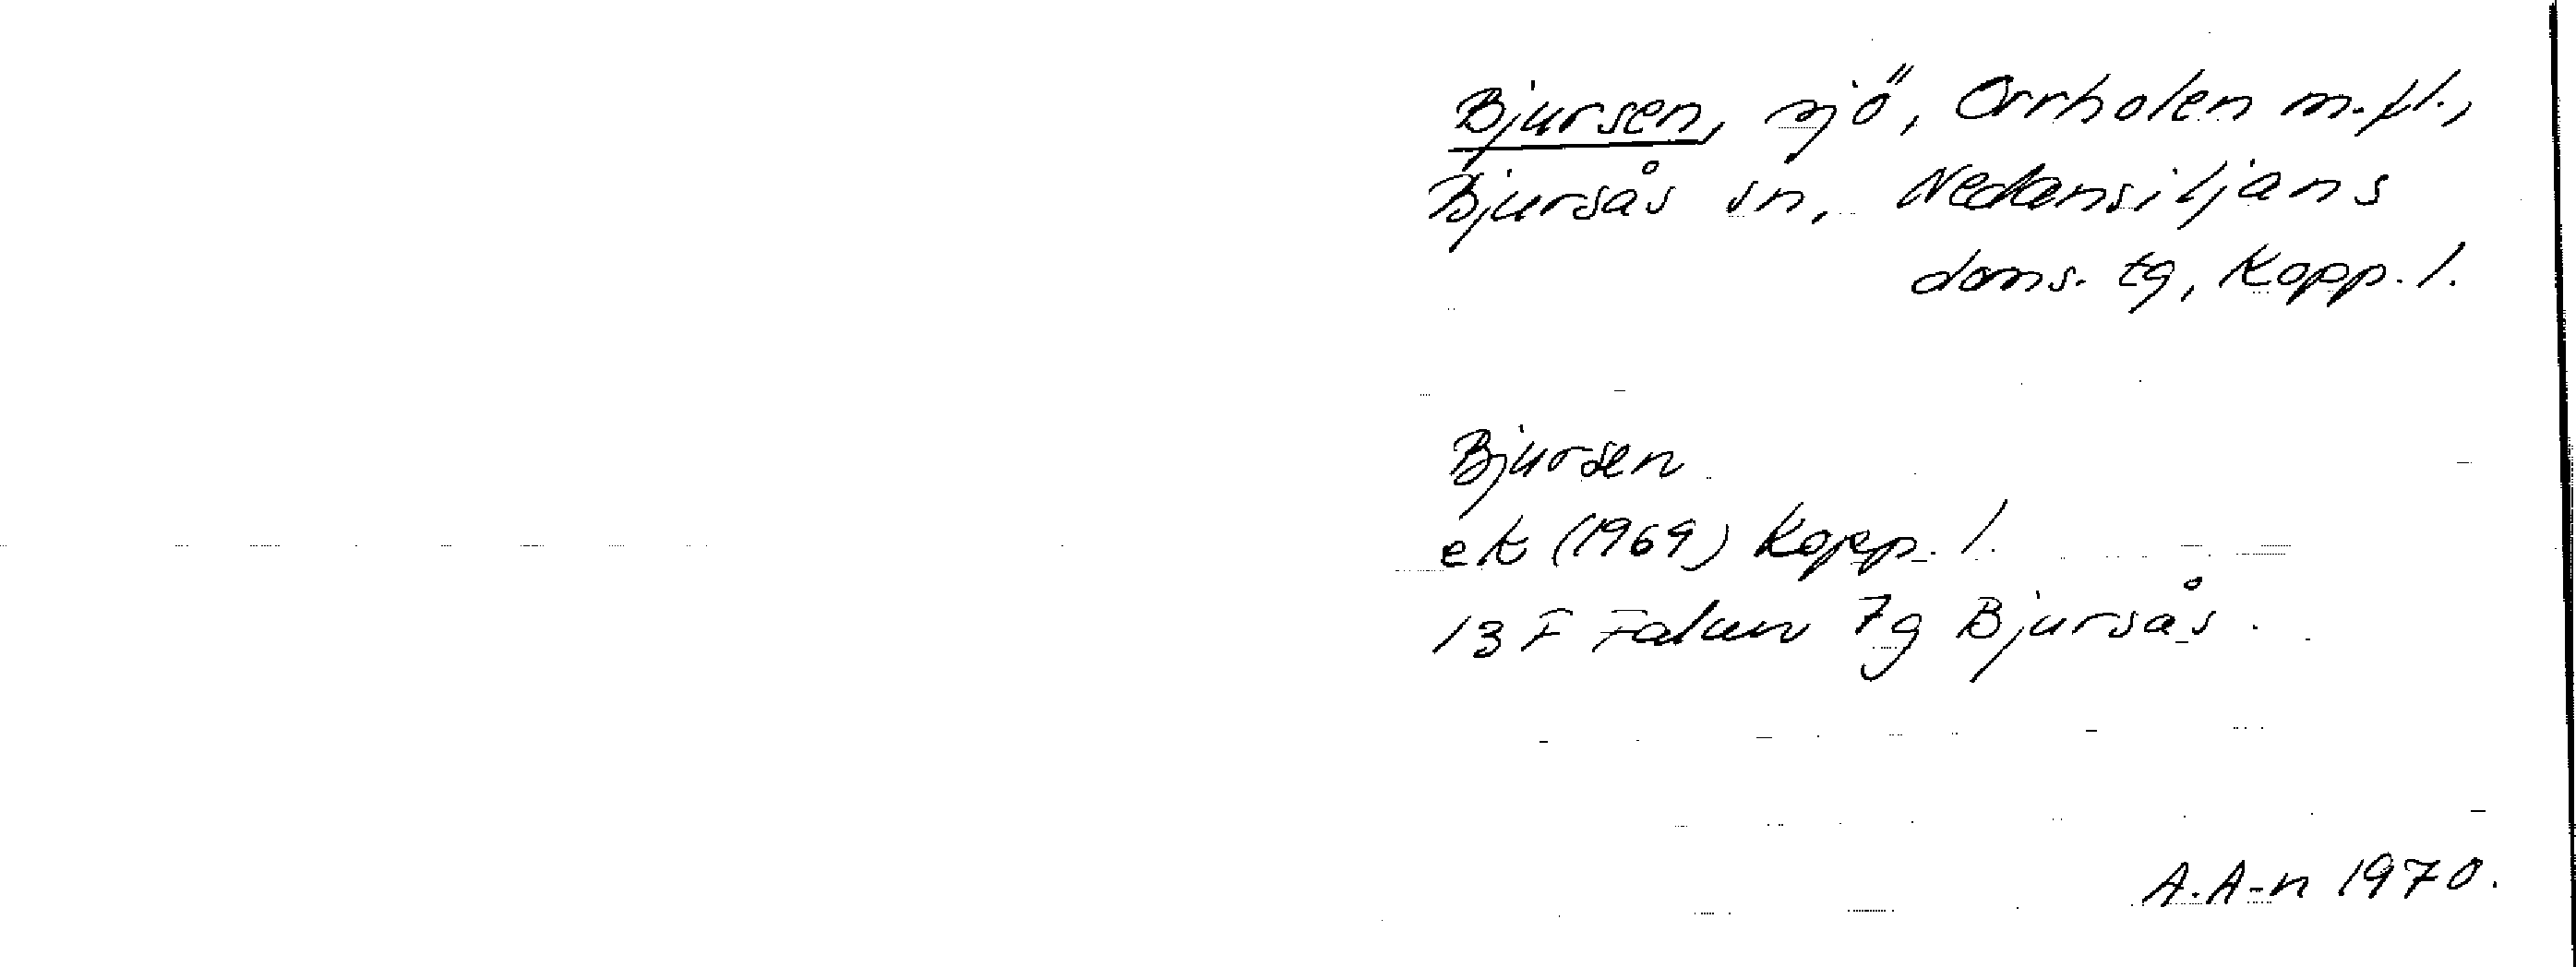 Bjursen, sjö, Orrholen m.fl.,
Bjursås sn, Nedansiljans
doms. tg, Kopp. l.
Bjursen
ek (1969) Kopp. l.
13 F Falun 7g Bjursås.
A.A-n 1970.